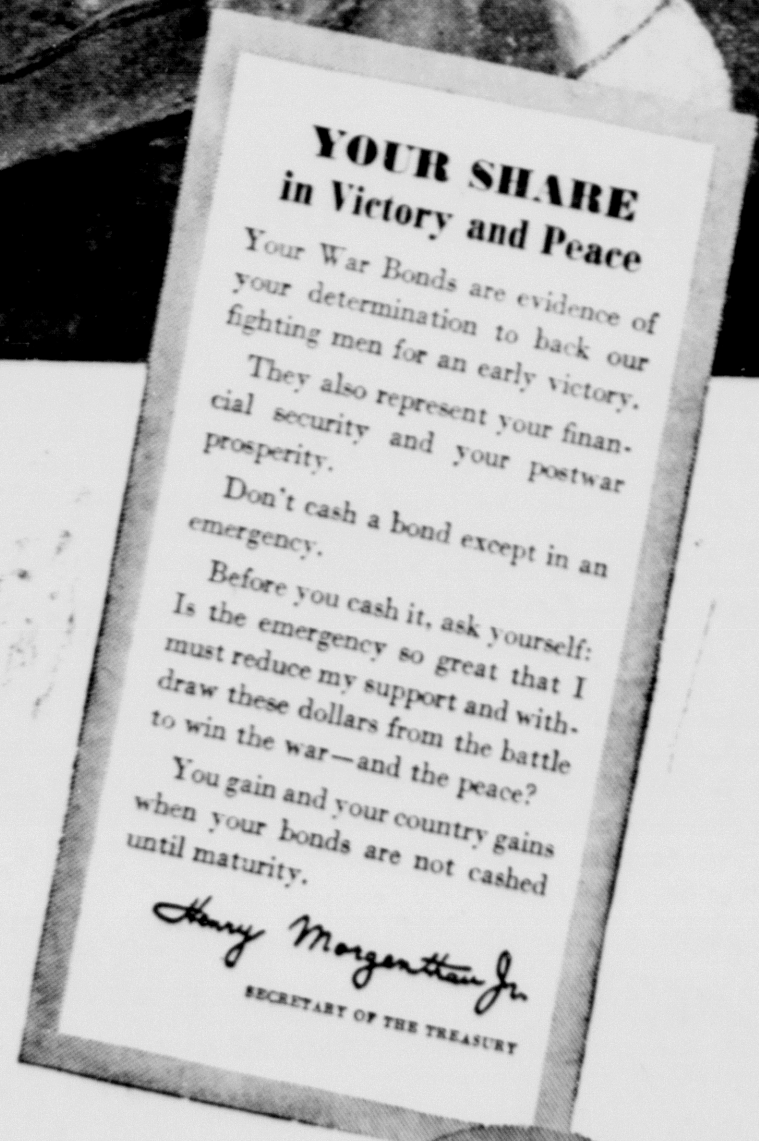 YOUR SHARE
in Victory and Peace
Your War Bonds are evidence of
your determination to back our
fighting men for an early victory.
They also represent your finan-
cial security and your postwar
prosperity.
Don't cash a bond except in an
emergency.
Before you cash it, ask yourself:
Is the emergency so great that I
must reduce my support and with-
draw these dollars from the battle
to win the war—and the peace?
You gain and your country gains
when your bonds are not cashed
until maturity.
Henry Morgenthau Jr.
SECRETARY OF THE TREASURY